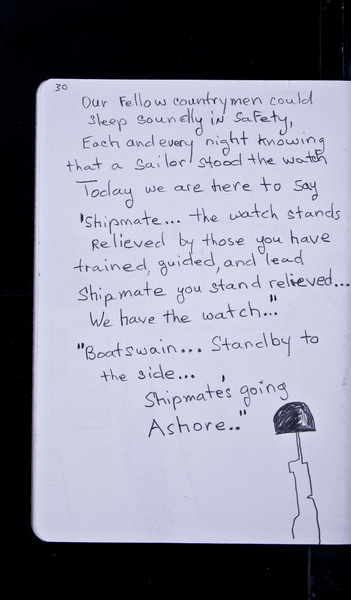 30
Our Fellow countrymen could
sleep soundly in safety,
Each and every night knowing
that a sailor stood the watch
Today we are here to say
'Shipmate... the watch stands
Relieved by those you have
trained, guided, and lead
Shipmate you stand relieved...
We have the watch..."
"Boatswain... Standby to
the side...
Shipmate's going
Ashore.."